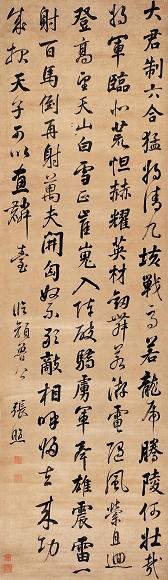 大君制六合猛將清九垓戰馬若龍虎騰陵何壯哉
將軍臨北荒恒赫耀英材劍舞若游電隨風縈且迴
登高望天山白雪正崔嵬入陣破驕虜軍聲雄震雷一
射百馬倒再射萬夫開匈奴不敢敵相呼歸去來功
成報天子可以畫麟臺 臨顏魯公 張照